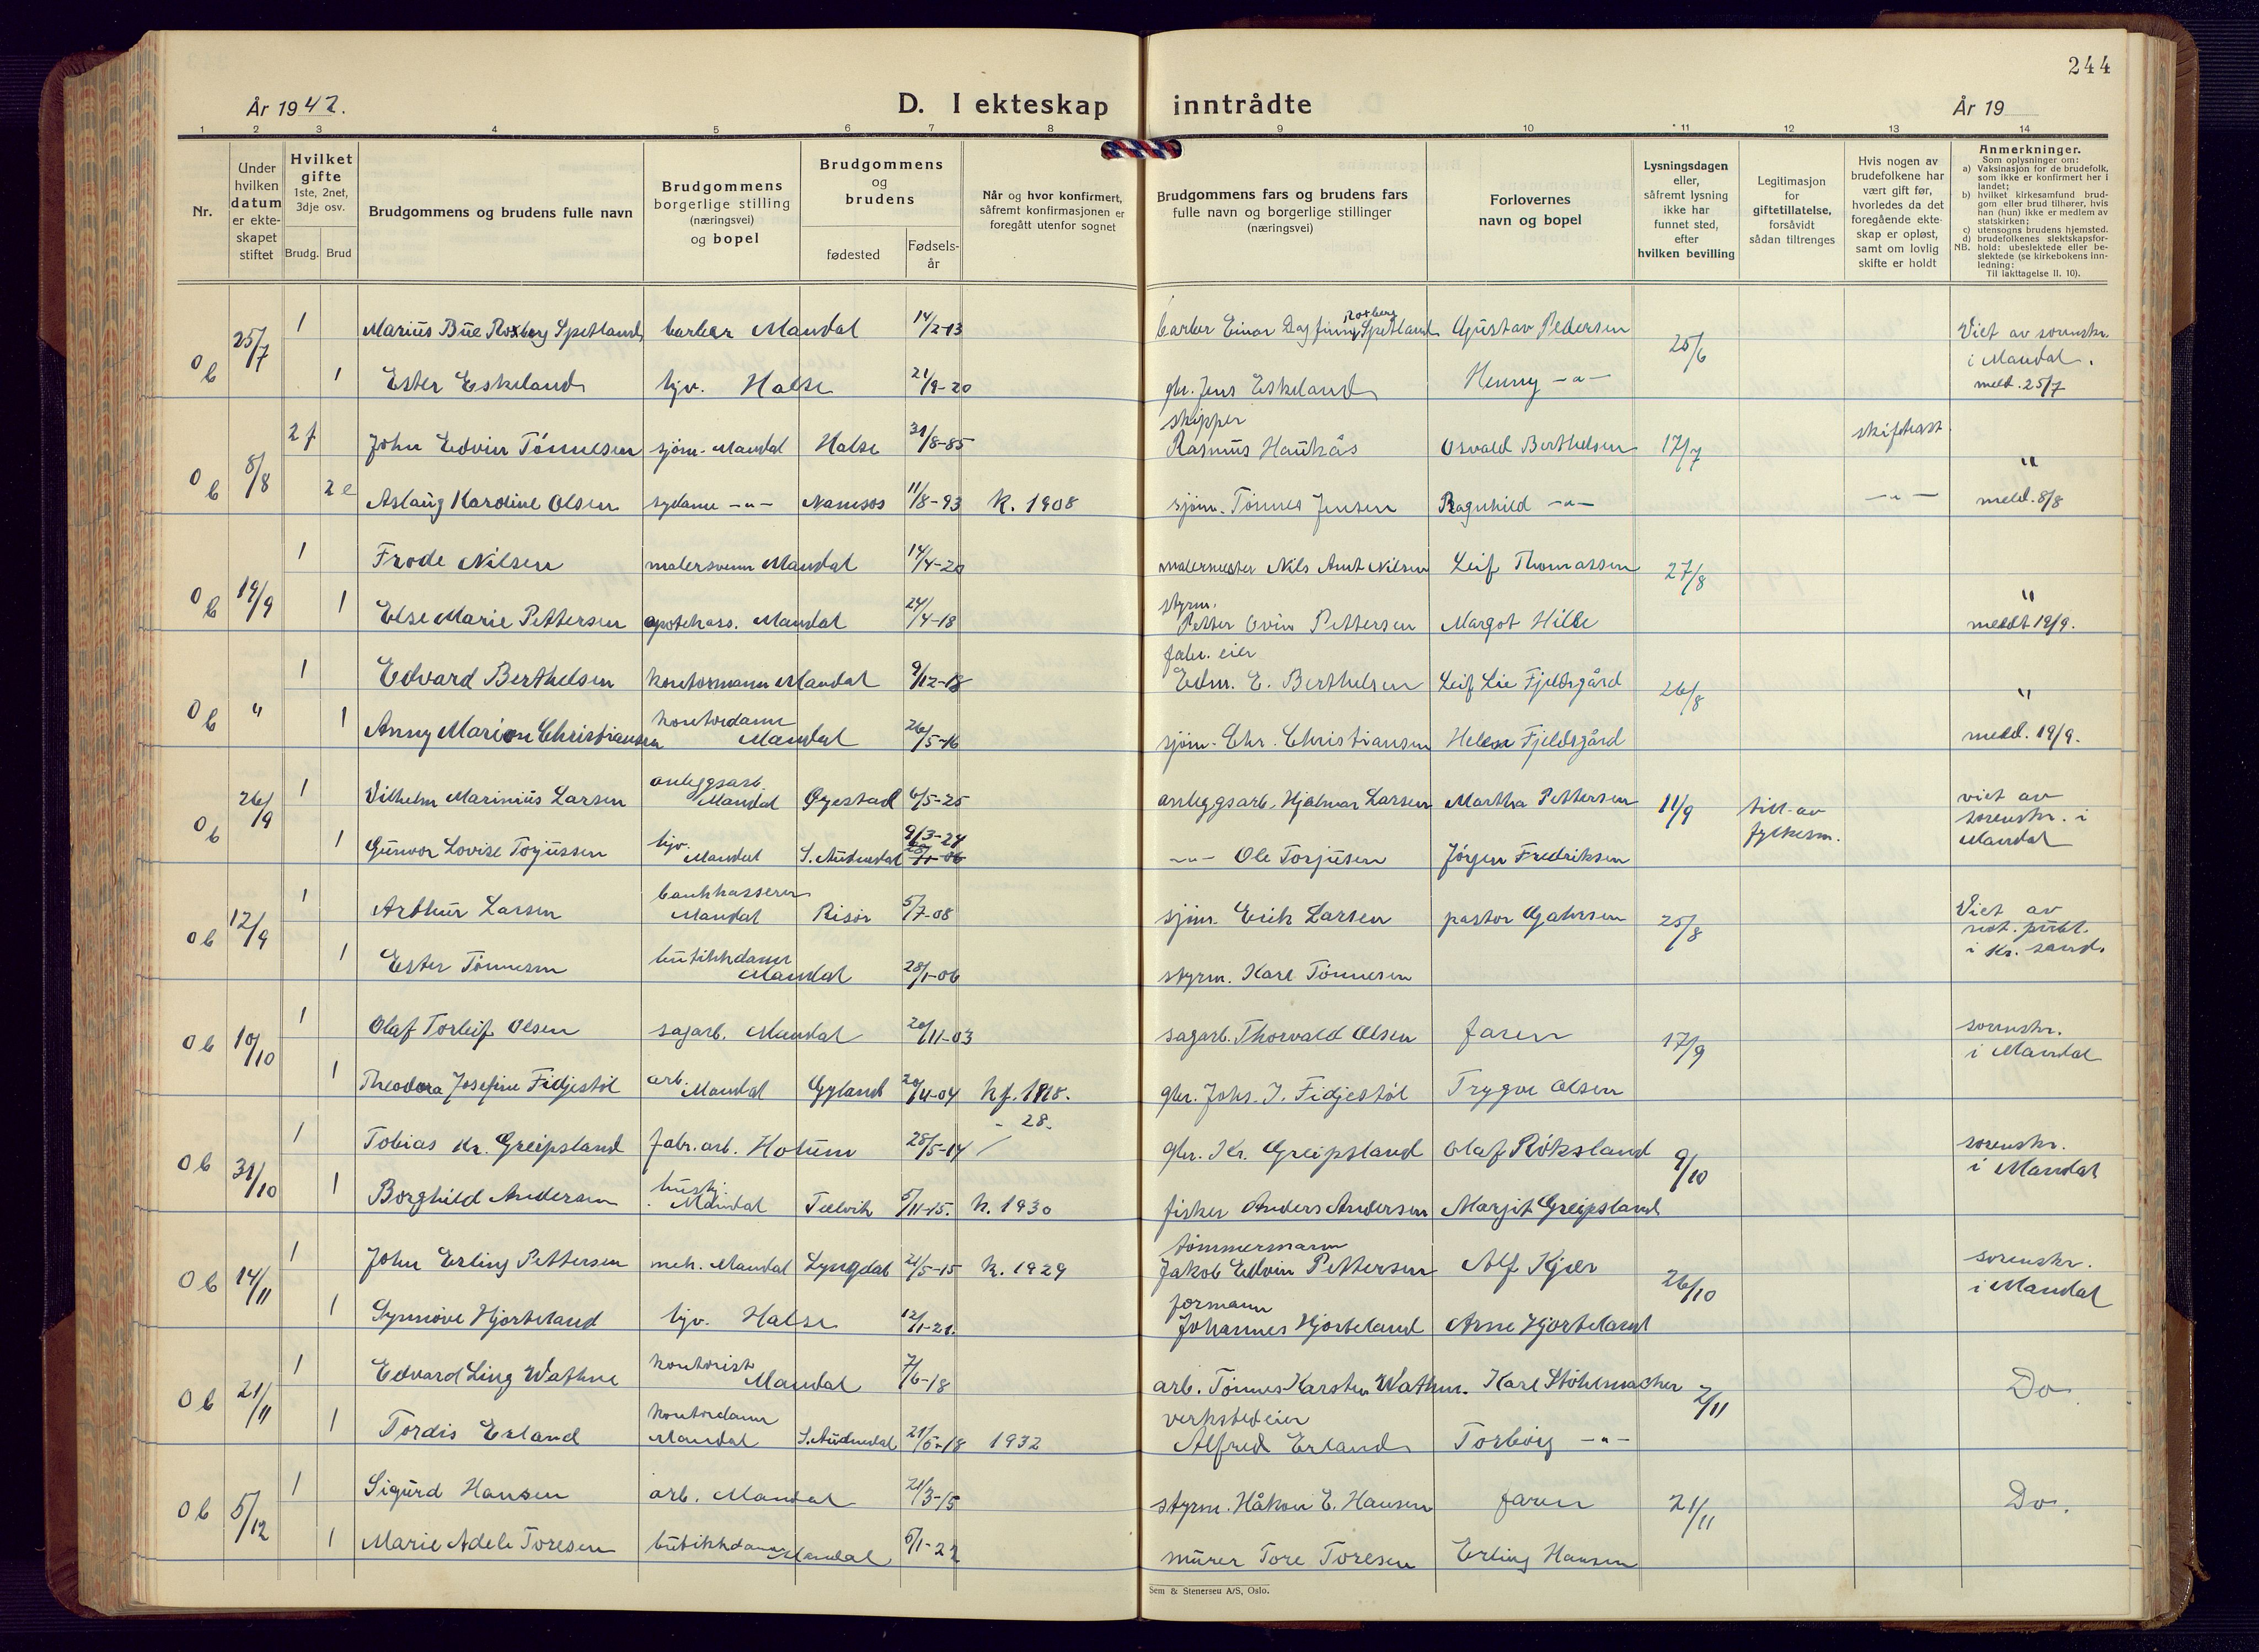 244
År 1942.
D. I ekteskap inntrådte
År 19
1 2 3 4 5 6 7 8 9 10 11 12 13 14
Nr.
Under hvilken datum er ekteskapet stiftet
Hvilket gifte
1ste, 2net, 3dje osv.
Brudg. Brud
Brudgommens og brudens fulle navn
Brudgommens borgerlige stilling (næringsvei) og bopel
Brudgommens og brudens
fødested
Fødselsår
Når og hvor konfirmert, såfremt konfirmasjonen er foregått utenfor sognet
Brudgommens fars og brudens fars fulle navn og borgerlige stillinger (næringsvei)
Forlovernes navn og bopel
Lysningsdagen eller, såfremt lysning ikke har funnet sted, efter hvilken bevilling
Legitimasjon for giftetillatelse, forsåvidt sådan tiltrenges
Hvis nogen av brudefolkene har vært gift før, hvorledes da det foregående ekteskap er opløst, samt om lovlig skifte er holdt
Anmerkninger.
Som oplysninger om:
a) Vaksinasjon for de brudefolk, som ikke er konfirmert her i landet;
b) hvilket kirkesamfund brudgom eller brud tilhører, hvis han (hun) ikke er medlem av statskirken;
c) utensogns brudens hjemsted.
d) brudefolkenes slektskapsforhold: ubeslektede eller beslektede (se kirkebokens innledning:
NB. Til iakttagelse II. 10).
Ob 25/7 1 Marius Bue Roxberg Spetland barber Mandal 14/2-13 barber Einar Dagfinn Roxberg Spetland Gustav Pedersen 25/6 Viet av sorenskr. i Mandal.
1 Ester Eskeland hjv. Halse 21/9-20 gbr. Jens Eskeland Henny -"- meld. 25/7
Ob 8/8 2 f John Edvin Tönnesen sjöm. Mandal Halse 31/8-85 skipper Rasmus Haukås Osvald Berthelsen 17/7 "
2 e Aslaug Karoline Olsen sydame -"- Namsos 11/8-93 K. 1908 sjöm. Tönnes Jensen Ragnhild -"- -"- meld. 8/8
Ob 19/9 1 Frode Nilsen malersvenn Mandal 14/4-20 malermester Nils Arnt Nilsen Leif Thomassen 27/8 "
1 Else Marie Pettersen apotekass. Mandal 24/4-18 styrm. Petter Ovin Pettersen Margot Hille meldt 19/9.
Ob " 1 Edvard Berthelsen kontormann Mandal 9/12-18 fabr. eier Edm. E. Berthelsen Leif Lie Fjeldsgård 26/8 "
1 Anny Marion Christiansen kontordame Mandal 26/5-16 sjöm. Chr. Christiansen Helene Fjeldsgård meld. 19/9.
Ob 26/9 1 Vilhelm Marinius Larsen anleggsarb. Mandal Øyestad 6/5-25 anleggsarb. Hjalmar Larsen Martha Pettersen 11/9 till. av fylkesm. viet av sorenskr. i Mandal
1 Gunvor Lovise Torjussen hjv. Mandal S. Audnedal 9/3-24 -"- Ole Torjusen Jörgen Fredriksen
Ob 12/9 1 Arthur Larsen bankkasserer Mandal Risör 5/7-08 sjöm. Erik Larsen pastor Gahrsen 25/8 Viet av not. publ. i Kr. sand.
1 Ester Tönnesen butikkdame Mandal 28/1-06 styrm. Karl Tönnesen
Ob 10/10 1 Olaf Torleif Olsen sagarb. Mandal 20/11-03 sagarb. Thorvald Olsen faren 17/9 sorenskr. i Mandal
1 Theodora Josefine Fidjestöl arb. Mandal Gyland 20/4-04 kf. 1918. gbr. Johs. J. Fidjestöl Trygve Olsen
Ob 31/10 1 Tobias Kr. Greipsland fabr. arb. Holum 28/5-14 - 28. gbr. Kr. Greipsland Olaf Röksland 9/10 sorenskr. i Mandal
1 Borghild Andersen hushj. Mandal Talvik 5/11-15. k. 1930 fisker Anders Andersen Margit Greipsland
Ob 14/11 1 John Erling Pettersen mek. Mandal Lyngdal 21/5-15 k. 1929 tömmermann Jakob Edvin Pettersen Alf Kjær 26/10 sorenskr. i Mandal
1 Synnöve Hjorteland hjv. Halse 12/11-21. formann Johannes Hjorteland Arne Hjorteland
Ob 21/11 1 Edvard Ling Wathne kontorist Mandal 7/6-18 arb. Tönnes Karsten Wathne. Karl Stöhlmacher 2/11 Do
1 Tordis Erland kontordame Mandal S. Audnedal 21/5-18 1932 verkstedeier Alfred Erland Torborg -"-
Ob 5/12 1 Sigurd Hansen arb. Mandal 21/3-15 styrm. Håkon E. Hansen faren 21/11 Do.
1 Marie Adele Toresen butikkdame Mandal 5/1-22 murer Tore Toresen Erling Hansen
Sem & Stenersen A/S, Oslo.